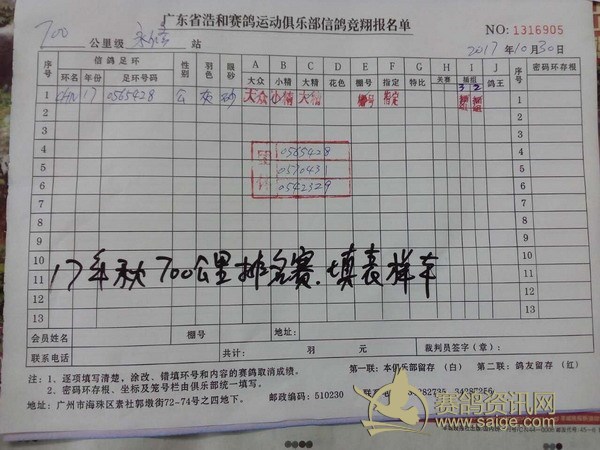 广东省浩和赛鸽运动俱乐部信鸽竞翔报名单
700 公里级 站
NO: 1316905
2017年10月30日
序号 信鸽足环 性别 羽色 眼砂 A B C D E F G H I J 序号 密码环存根
环名 年份 足环号码 大众 小精 大精 花色 棚号 指定 特比 关赛 插组 鸽王
3 2
1 CHN 17 0565428 公 灰 砂 大众 小精 大精 棚号 指定 插组 插组 1
2 2
3 3
4 0565428 4
5 0510431 5
6 0542329 6
7 7
8 8
9 9
10 10
17年秋700公里排名赛.填表样本
11 11
12 12
13 13
会员姓名 棚号 地址:
联系电话 共计: 羽 元 裁判员签字(章):
注:1、逐项填写清楚,涂改、错填环号和内容的赛鸽取消成绩。 第一联:本俱乐部留存(白) 第二联:鸽友留存(红)
2、密码环存根、坐标及笼号栏由俱乐部统一填写。
地址:广州市海珠区素社郭墩街72-74号之四地下。 邮政编码:510230
赛鸽资讯网
www.saige.com